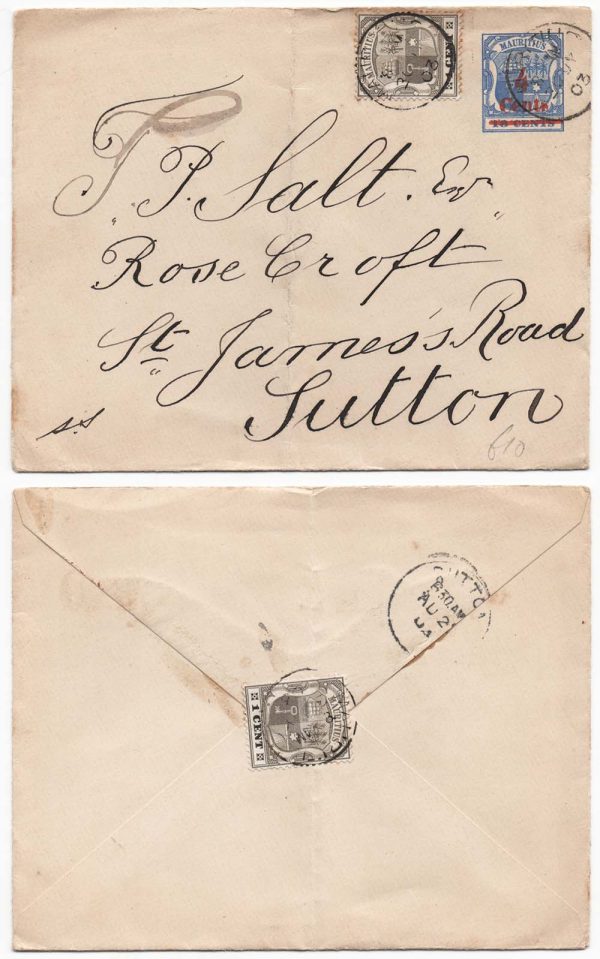 MAURITIUS
MAURITIUS
4
Cents
18 CENTS
03
03
T. P. Salt. Esqr
Rose Croft
St James's Road
Sutton
s.s
610
SUTTON
8.30AM
AU 2
03
MAURITIUS
1 CENT